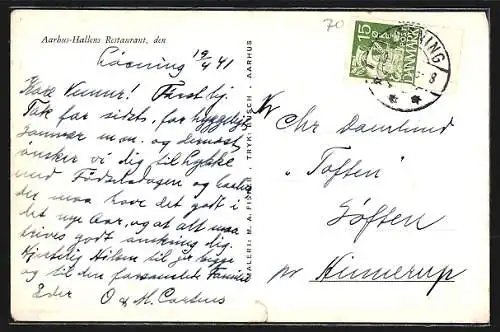 Aarhus-Hallens Restaurant, den
Løsning 19/4 41
Kære Venner! Først
Tak for sidst, for hyggelig
samvær m.m. og dernæst
ønsker vi dig til Lykke
med Fødselsdagen og
der maa have det godt i
det nye Aar, og at alt maa
trives godt omkring dig.
Kjærlig Hilsen til jer begge
og til den forsamlede Familie
Eders O & M. Carstens
MALERI: M. A. FISHER TRYK: BUSCH - AARHUS
70
15
DANMARK
NING
Hr Chr Damlund
"Toften"
Søften
pr Hinnerup